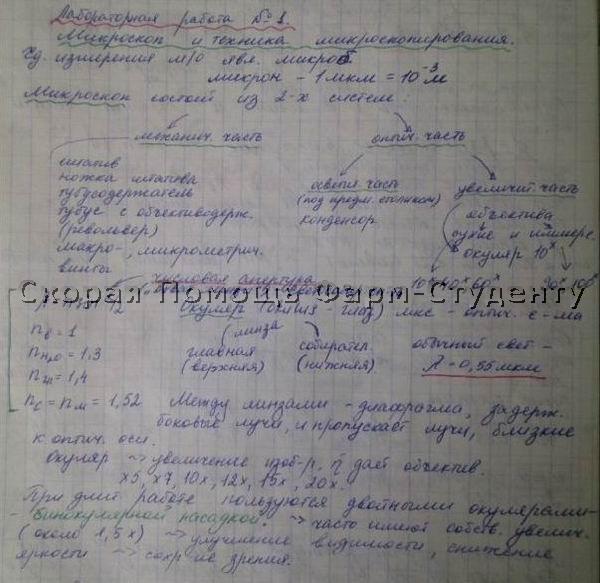 Лабораторная работа № 1.
Микроскоп и техника микроскопирования.
Ед. измерения м/о явл. микроб
микрон - 1 мкм = 10⁻³ м
Микроскоп состоит из 2-х систем:
механич. часть оптич. часть
штатив
ножка штатива
тубусодержатель
тубус с объективодерж.
(револьвер)
макро-, микрометрич.
винты
осветит. часть
(под предм. столиком)
конденсор
увеличит. часть
объектива
сухие и иммерс.
окуляр 10ˣ
числовая апертура
10ˣ 40ˣ 60ˣ 90ˣ 100ˣ
Скорая Помощь Фарм-Студенту
Окуляр (близ - глаз) мкс - оптич. с-ма
(линза
главная собирател. обычный свет -
(верхняя) (нижняя) λ - 0,55 мкм
nв = 1
nH₂O = 1,3
nгл = 1,4
nс = nм = 1,52 Между линзами - диафрагма, задерж.
боковые лучи, и пропускает лучи, близкие
к оптич. оси.
Окуляр → увеличение изоб-я, дает объектив.
x5, x7, 10x, 12x, 15x, 20x.
При длит работе пользуются двойными окулярами -
- бинокулярной насадкой. → часто имеют собств. увелич.
(около 1,5x) → улучшение видимости, снижение
яркости → сохр-ие зрения.